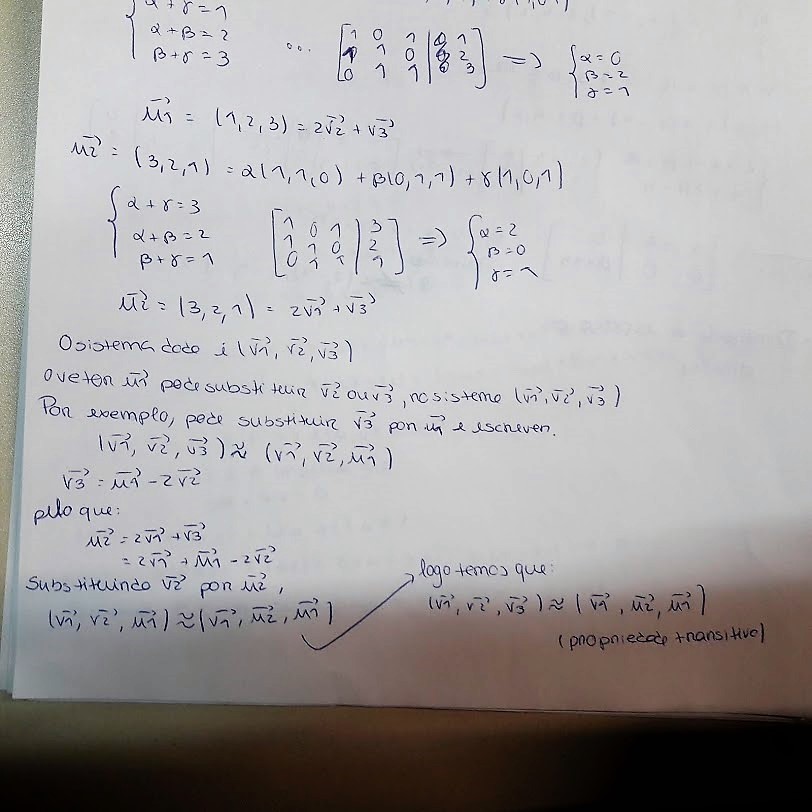 α + γ = 1
α + β = 2
β + γ = 3
... [1 0 1 | 1
1 1 0 | 2
0 1 1 | 3] => {α = 0
β = 2
γ = 1
u1 = (1,2,3) = 2v2 + v3
u2 = (3,2,1) = α(1,1,0) + β(0,1,1) + γ(1,0,1)
{α + γ = 3
α + β = 2
β + γ = 1
[1 0 1 | 3
1 1 0 | 2
0 1 1 | 1] => {α = 2
β = 0
γ = 1
u2 = (3,2,1) = 2v1 + v3
O sistema dado é (v1, v2, v3)
O vetor u1 pode substituir v2 ou v3, no sistema (v1, v2, v3)
Por exemplo, pode substituir v3 por u1 e escrever.
(v1, v2, v3) ≈ (v1, v2, u1)
v3 = u1 - 2v2
pelo que:
u2 = 2v1 + v3
= 2v1 + u1 - 2v2
Substituindo v2 por u2,
(v1, v2, u1) ≈ (v1, u2, u1)
logo temos que:
(v1, v2, v3) ≈ (v1, u2, u1)
(propriedade transitiva)